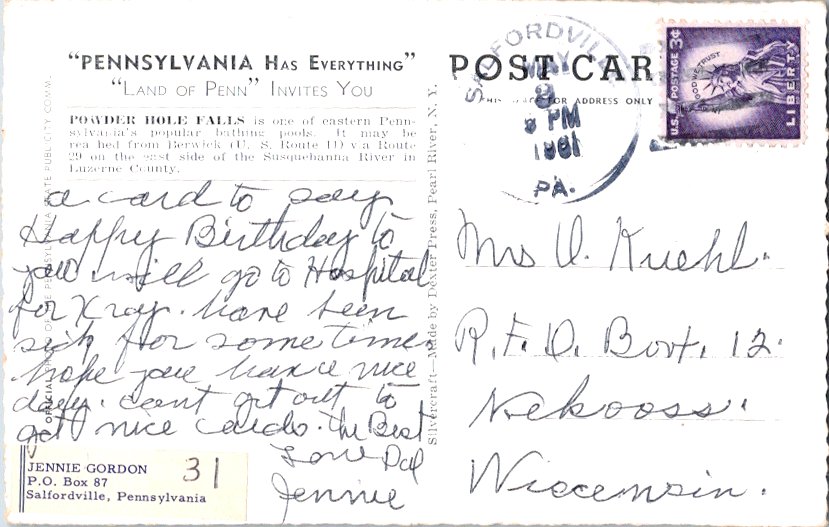 "PENNSYLVANIA HAS EVERYTHING"
"LAND OF PENN" INVITES YOU
POWDER HOLE FALLS is one of eastern Penn-
sylvania's popular bathing pools. It may be
reached from Berwick (U. S. Route 11) via Route
29 on the east side of the Susquehanna River in
Luzerne County.
a card to say
Happy Birthday to
you will go to Hospital
for Xray. have been
sick for some time.
hope you have a nice
day. cant get out to
get nice cards. the Best
Love Pal
Jennie
JENNIE GORDON
P.O. Box 87
Salfordville, Pennsylvania
31
OFFICIAL OF THE PENNSYLVANIA STATE PUBLICITY COMM.
Silvercraft—Made by Dexter Press, Pearl River, N. Y.
POST CAR
THIS SPACE FOR ADDRESS ONLY
SALFORDVILLE
MAY
2
PM
1961
PA.
U.S. POSTAGE 3¢
IN GOD WE TRUST
LIBERTY
Mrs O. Kuehl.
R.F.D. Box. 12.
Nekooss.
Wiscensin.